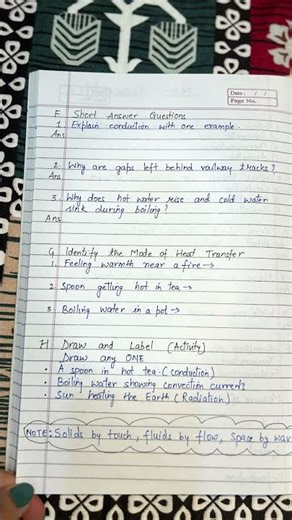 Date : / /
Page No.
F Short Answer Questions
1. Explain conduction with one example
Ans
2. Why are gaps left behind railway tracks?
Ans
3. Why does hot water rise and cold water
sink during boiling?
Ans
G Identify the Mode of Heat Transfer
1. Feeling warmth near a fire →
2. Spoon getting hot in tea →
3. Boiling water in a pot →
H Draw and Label (Activity)
Draw any ONE
• A spoon in hot tea. (conduction)
• Boiling water showing convection currents
• Sun heating the Earth (Radiation)
(NOTE: Solids by touch, fluids by flow, Space by wav